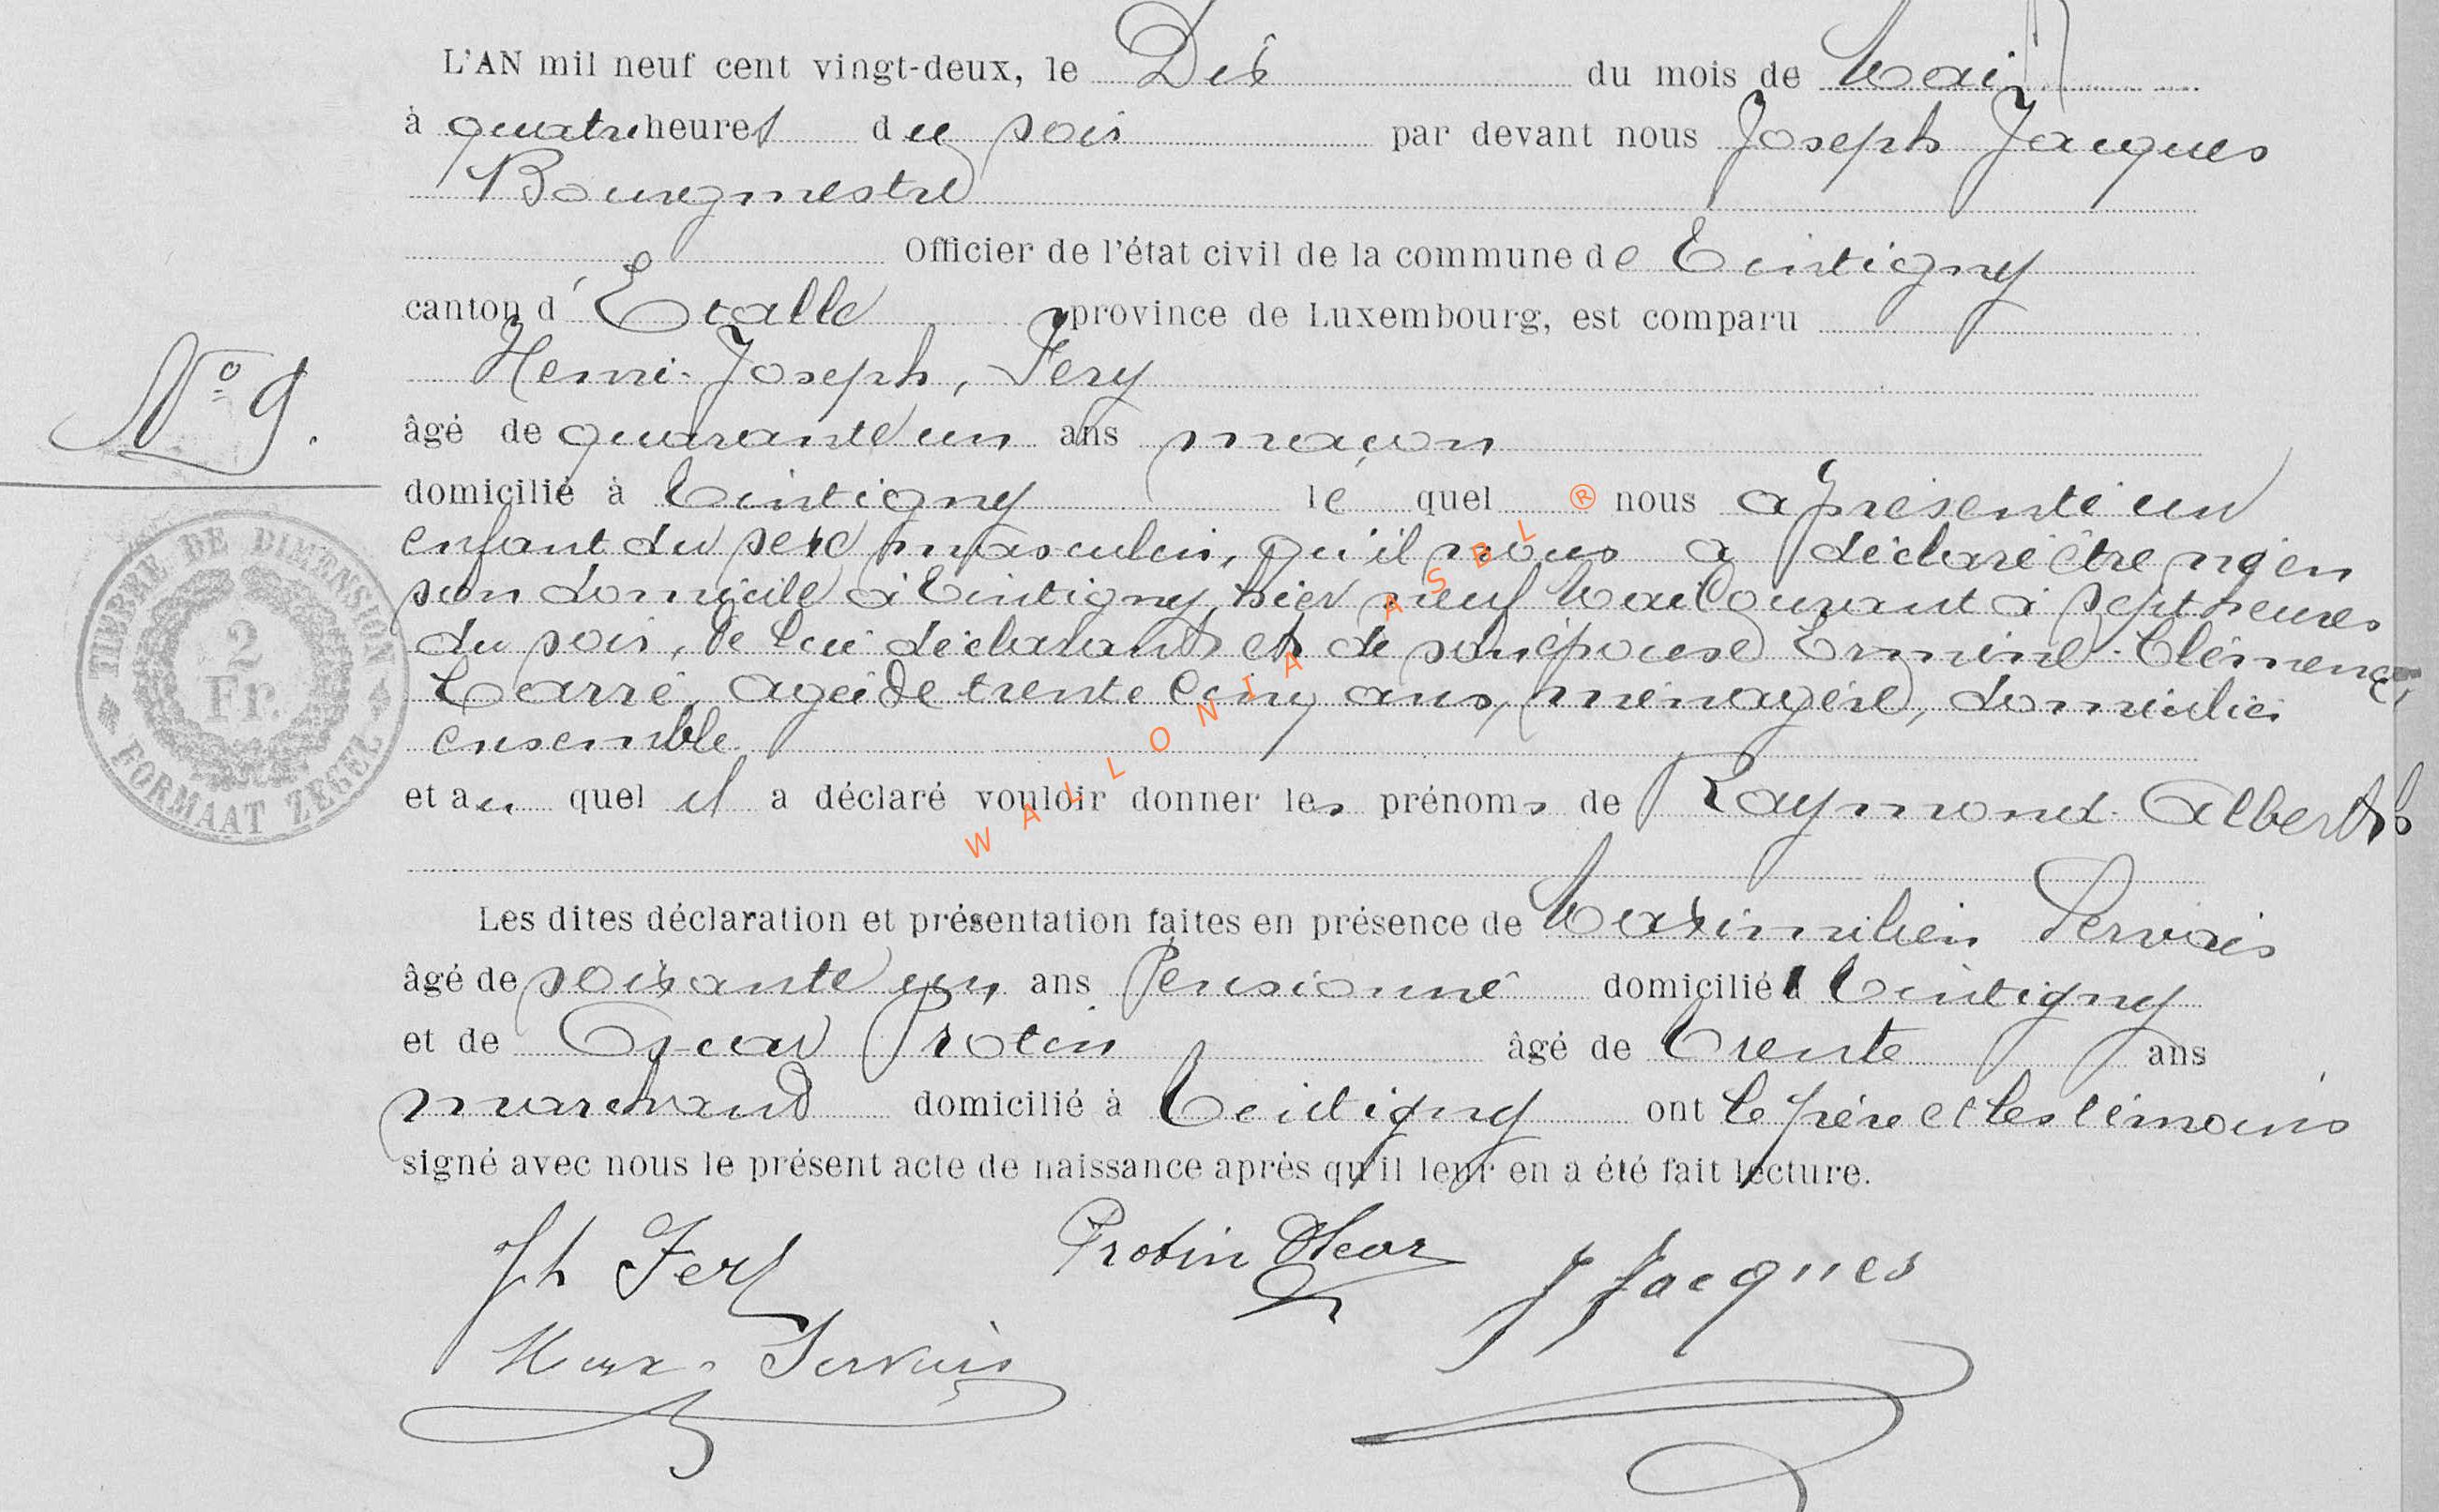 L'AN mil neuf cent vingt-deux, le Dix du mois de Mai
à quatre heures du soir par devant nous Joseph Jacques
Bourgmestre
Officier de l'état civil de la commune de Tintigny
canton d'Etalle province de Luxembourg, est comparu
Henri-Joseph, Fery
N° 9.
âgé de quarante un ans maçon
domicilié à Tintigny le quel nous a présenté un
enfant du sexe masculin, qu'il nous a déclaré être né en
son domicile à Tintigny, hier neuf Mai Courant à sept heures
du soir, de lui déclarant et de son épouse Ermine-Clémence
Carré, agée de trente cinq ans, ménagère, domiciliés
ensemble
et au quel il a déclaré vouloir donner les prénoms de Raymond-Albert
Les dites déclaration et présentation faites en présence de Maximilien Servais
âgé de soixante un ans Pensionné domicilié à Tintigny
et de Oscar Protin âgé de Trente ans
marchand domicilié à Tintigny ont le père et les témoins
signé avec nous le présent acte de naissance après qu'il leur en a été fait lecture.
Jh Fery
Protin Oscar
J Jacques
Max. Servais
TIMBRE DE DIMENSION
2
Fr.
FORMAAT ZEGEL
WALLONIA ASBL ®